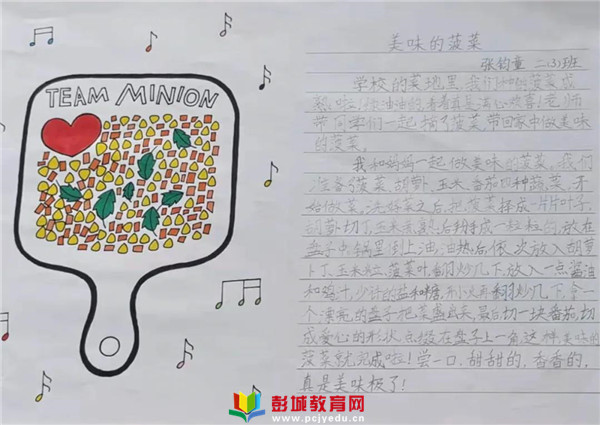 TEAM MINION
美味的菠菜
张钧童 二(3)班
学校的菜地里,我们种的菠菜成
熟啦!绿油油的,看着真是满心欢喜!老师
带同学们一起摘了菠菜,带回家中做美味
的菠菜。
我和妈妈一起做美味的菠菜,我们
准备了菠菜、胡萝卜、玉米、番茄四种蔬菜,开
始做菜。洗好菜之后,把菠菜择成一片片叶子,
胡萝卜切丁,玉米煮熟后剥成一粒粒的,放在
盘子中。锅里倒上油,油热后依次放入胡萝
卜丁、玉米粒、菠菜叶,翻炒几下,放入一点酱油
和鸡汁,少许的盐和糖,开小火再翻炒几下,拿一
个漂亮的盘子把菜盛出来,最后切一块番茄,切
成爱心的形状,点缀在盘子上一角,这样美味的
菠菜就完成啦!尝一口,甜甜的,香香的,
真是美味极了!
彭城教育网
www.pcjyedu.cn